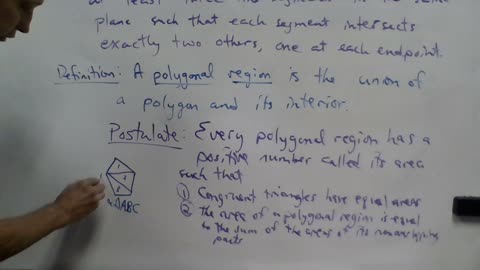 at least three segments in the same
plane such that each segment intersects
exactly two others, one at each endpoint.
Definition: A polygonal region is the union of
a polygon and its interior.
Postulate: Every polygonal region has a
positive number called its area
such that
① Congruent triangles have equal areas
② the area of a polygonal region is equal
to the sum of the areas of its nonoverlapping
parts
△ABC